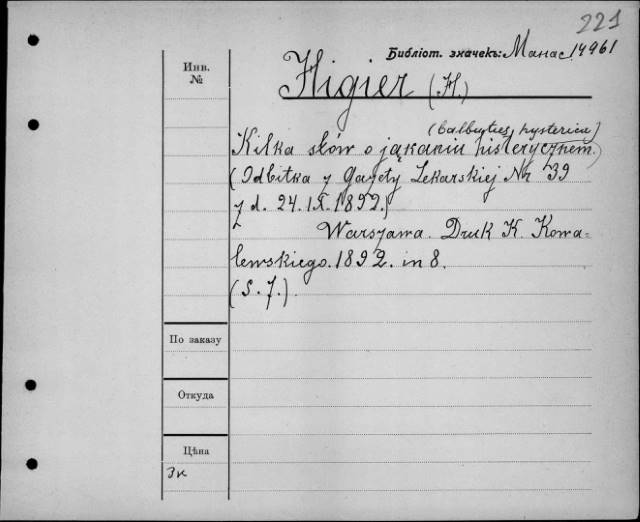 221
Библіот. значекъ: Манас. 14961
Инв.
№
Higier (H.)
(balbuties hysterica)
Kilka słów o jąkaniu histerycznem.
(Odbitka z Gazety Lekarskiej Nr 39
z d. 24.IX.1892.)
Warszawa. Druk K. Kowa-
lewskiego. 1892. in 8.
(S. 7.)
По заказу
Откуда
Цѣна
3к